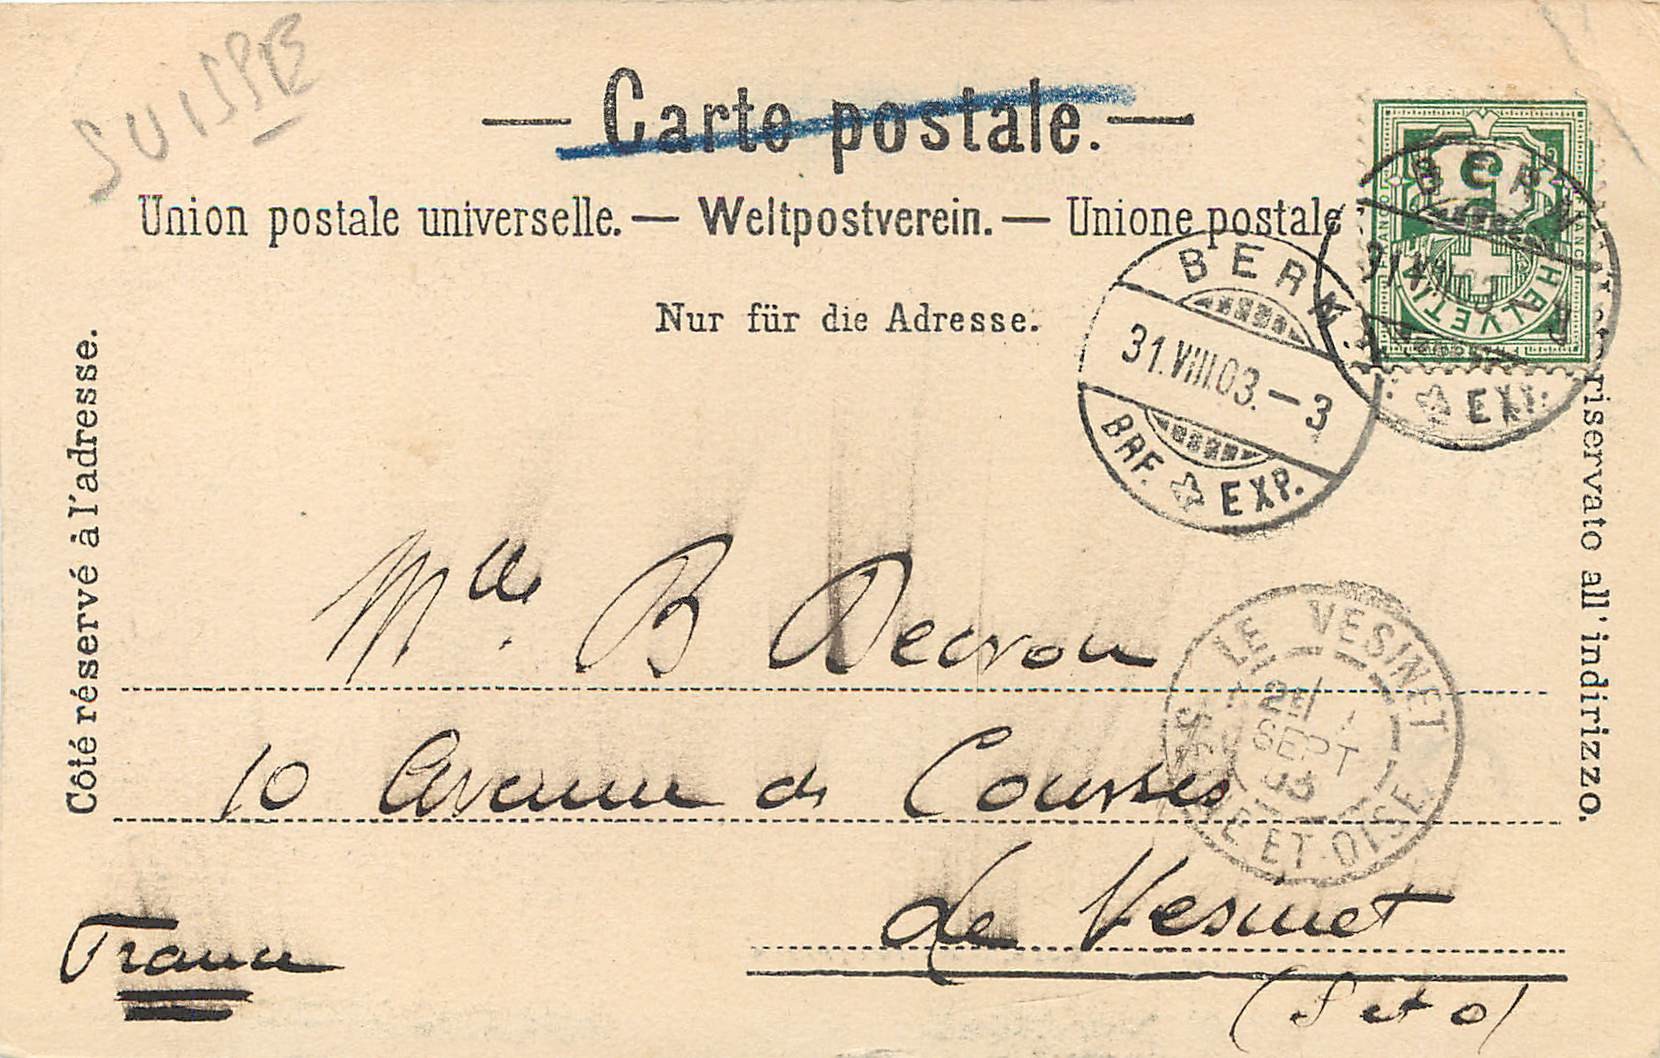 SUISSE
— Carte postale. —
Union postale universelle. — Weltpostverein. — Unione postale
Nur für die Adresse.
Côté réservé à l'adresse.
riservato all'indirizzo.
5
HELVETIA
BERN
EXP.
BERN
31.VIII.03. – 3
BRF. EXP.
LE VESINET
SEPT
03
SEINE-ET-OISE
Mlle. B Decron
10 Avenue de Courses
Le Vesinet
(S et O)
France